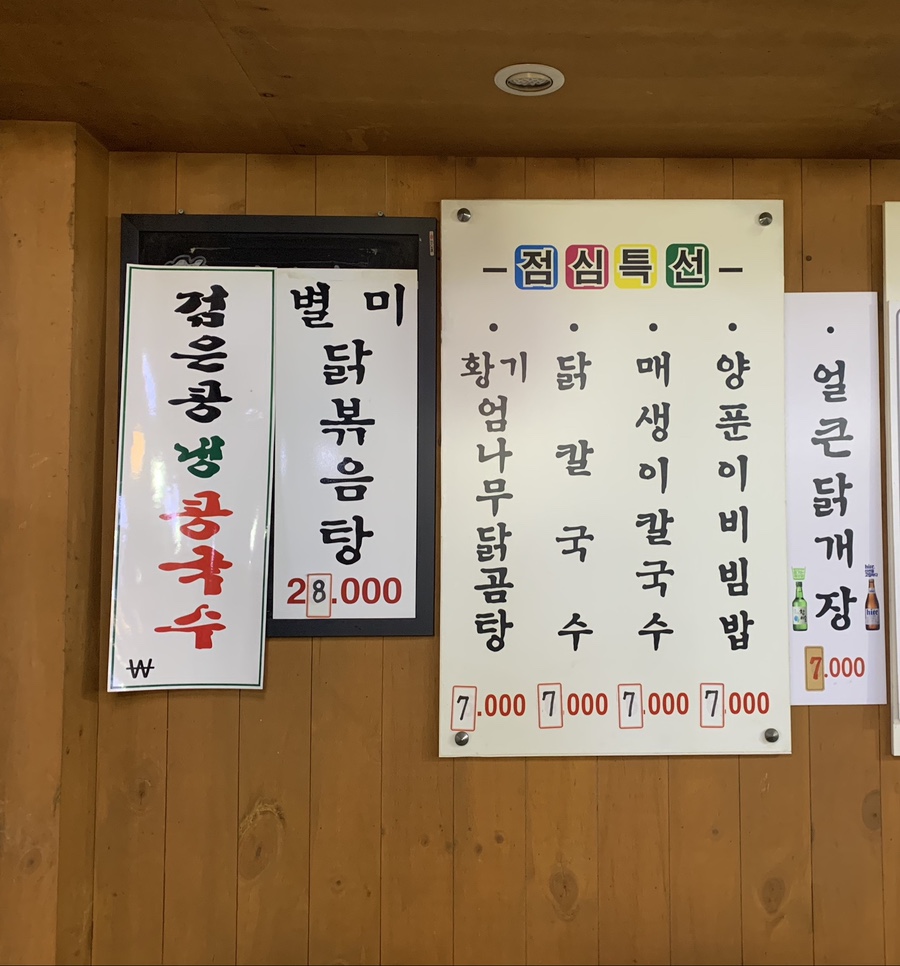 검은콩냉콩국수
₩
별미
닭볶음탕
28.000
점심특선
황기엄나무닭곰탕
7.000
닭칼국수
7.000
매생이칼국수
7.000
양푼이비빔밥
7.000
얼큰닭개장
7.000